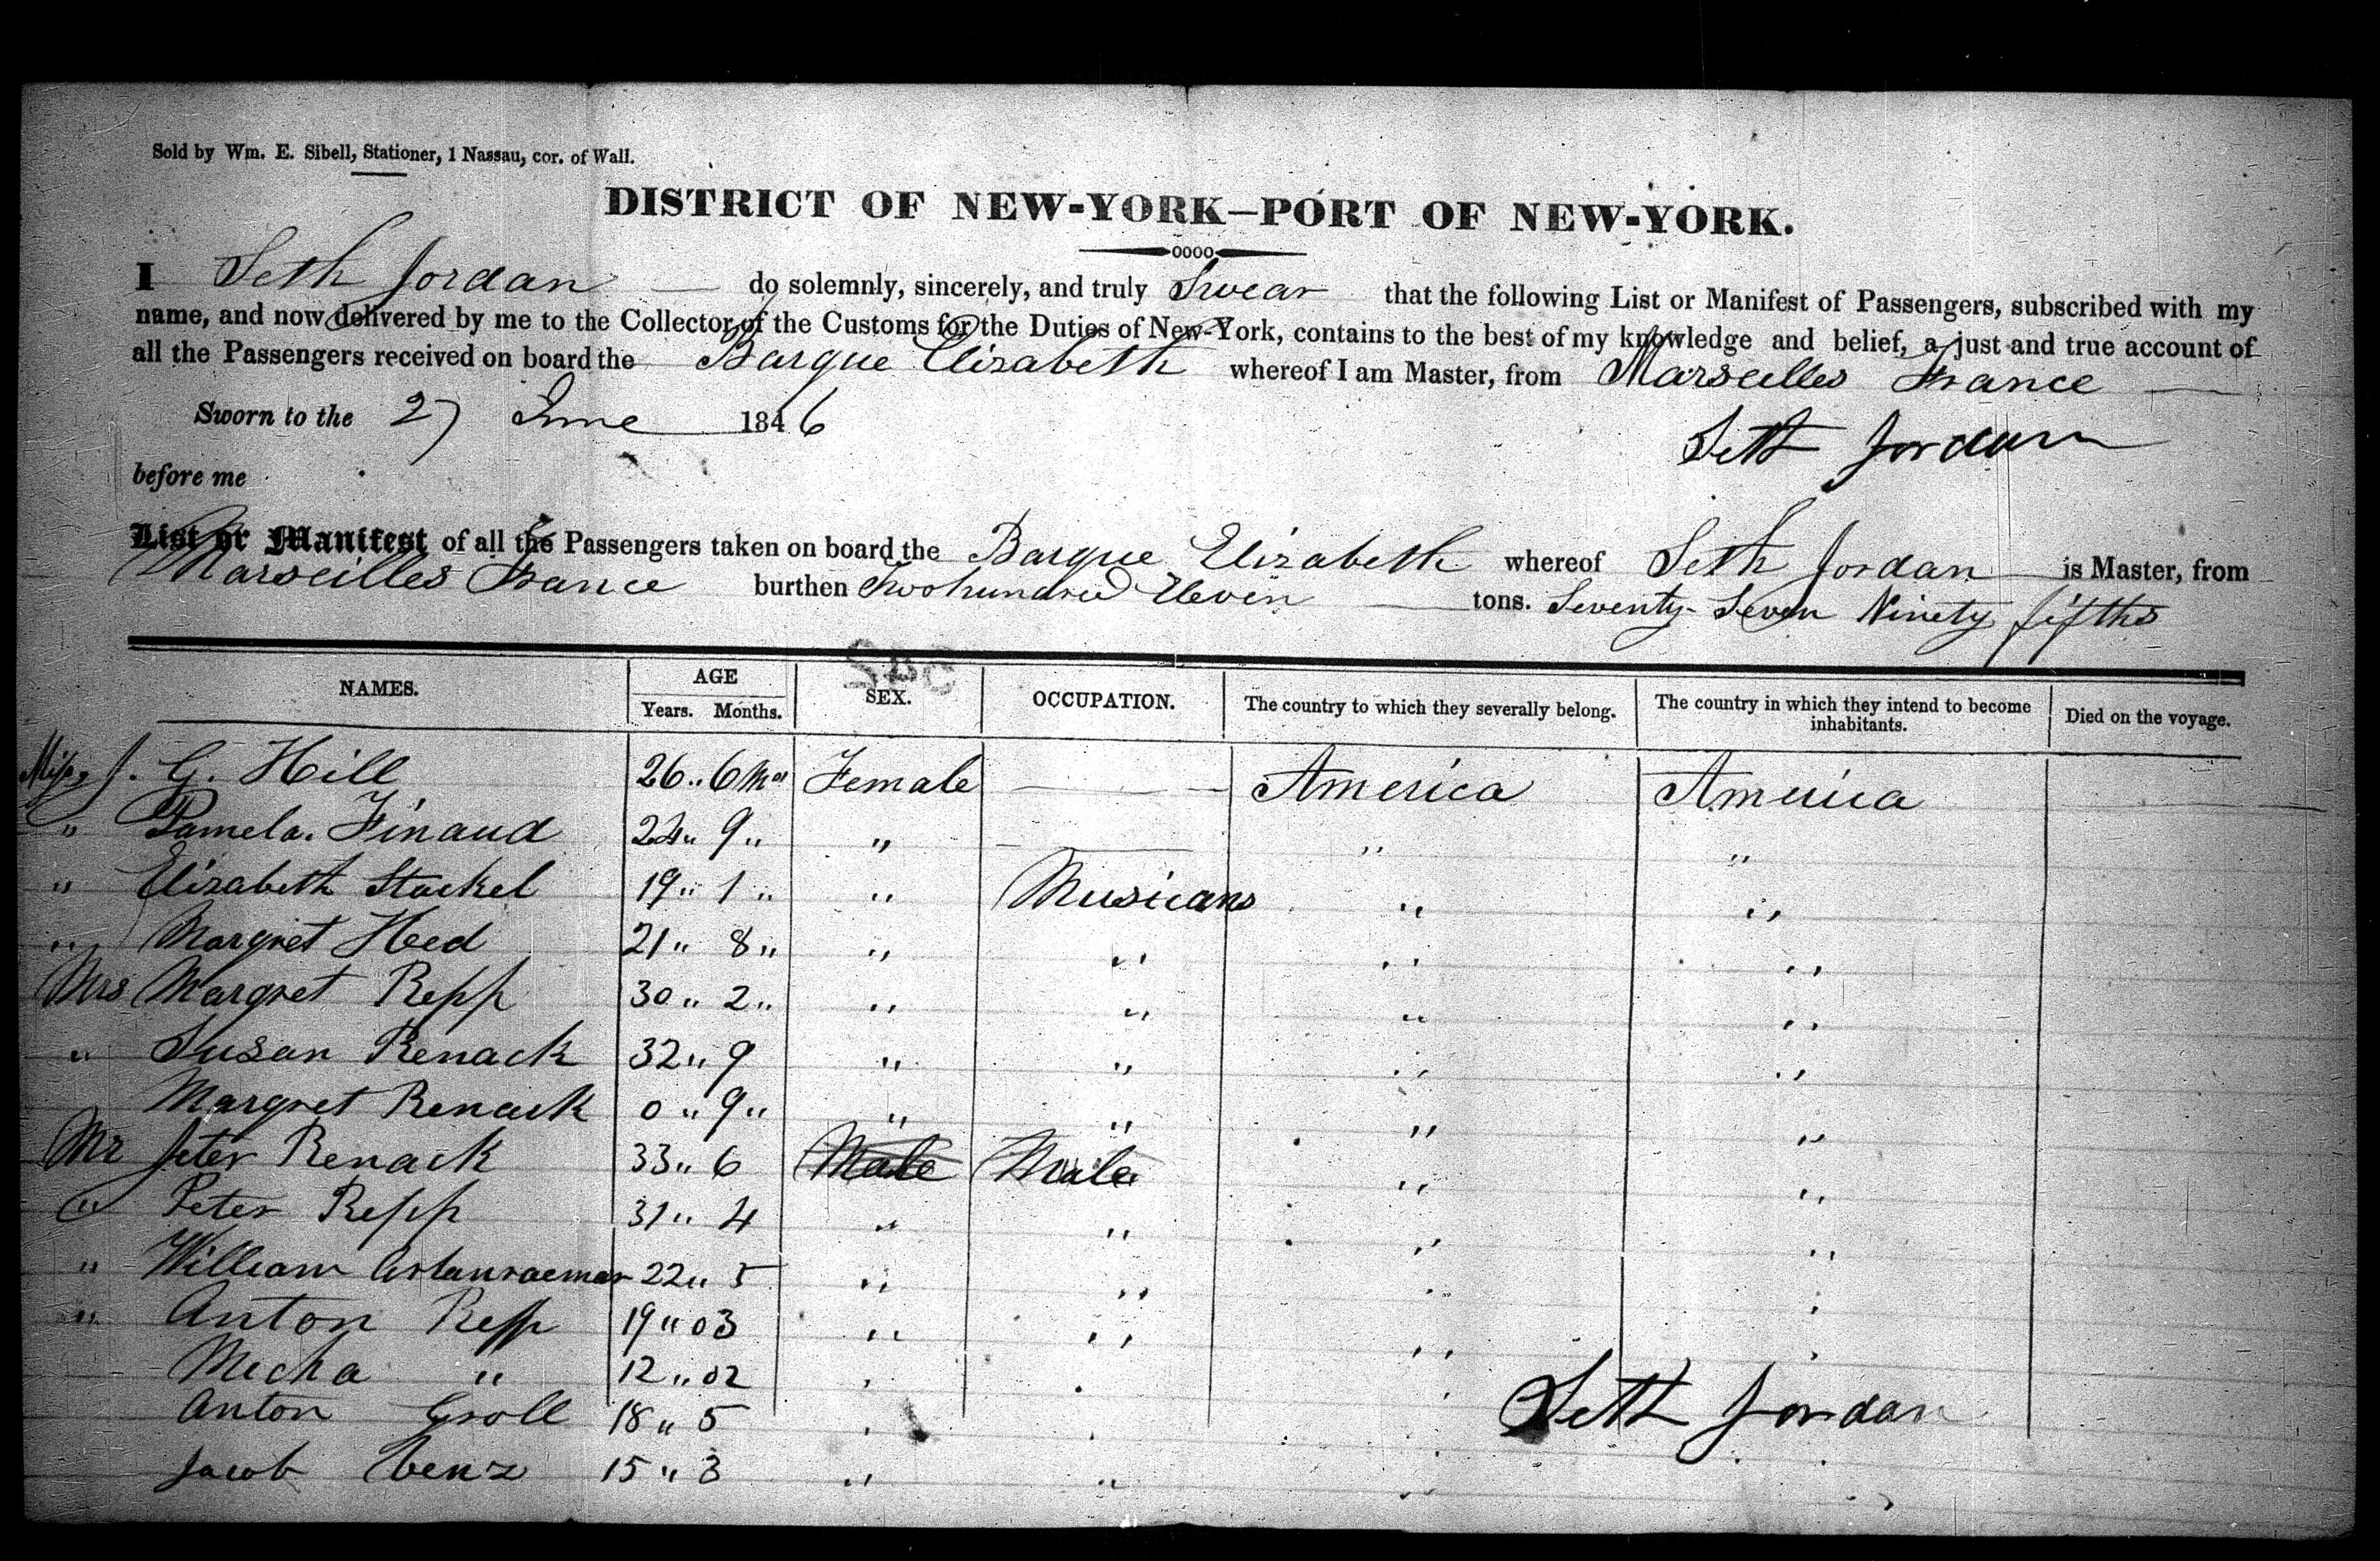 Sold by Wm. E. Sibell, Stationer, 1 Nassau, cor. of Wall.
DISTRICT OF NEW-YORK—PORT OF NEW-YORK.
I Seth Jordan — do solemnly, sincerely, and truly Swear that the following List or Manifest of Passengers, subscribed with my
name, and now delivered by me to the Collector of the Customs for the Duties of New-York, contains to the best of my knowledge and belief, a just and true account of
all the Passengers received on board the Barque Elizabeth whereof I am Master, from Marseilles France —
Sworn to the 27 June 1846
Seth Jordan
before me
List or Manifest of all the Passengers taken on board the Barque Elizabeth whereof Seth Jordan is Master, from
Marseilles France burthen Two hundred Eleven — tons. Seventy Seven Ninety fifths
NAMES. AGE SEX. OCCUPATION. The country to which they severally belong. The country in which they intend to become inhabitants. Died on the voyage.
Years. Months.
Miss J. G. Hill 26 " 6 Mos Female — America America
" Pamela. Finaud 24 " 9 " " — " "
" Elizabeth Stackel 19 " 1 " " Musicans " "
" Margret Heed 21 " 8 " " " " "
Mrs Margret Repp 30 " 2 " " " " "
" Susan Renack 32 " 9 " " " "
Margret Renack 0 " 9 " " " " "
Mr Peter Renack 33 " 6 Male Male " "
" Peter Repp 31 " 4 " " " "
" William 22 " 5 " " " "
" Anton Repp 19 " 03 " " " "
Mecha " 12 " 02
Anton Groll 18 " 5
Seth Jordan
Jacob 15 " 3 " " "